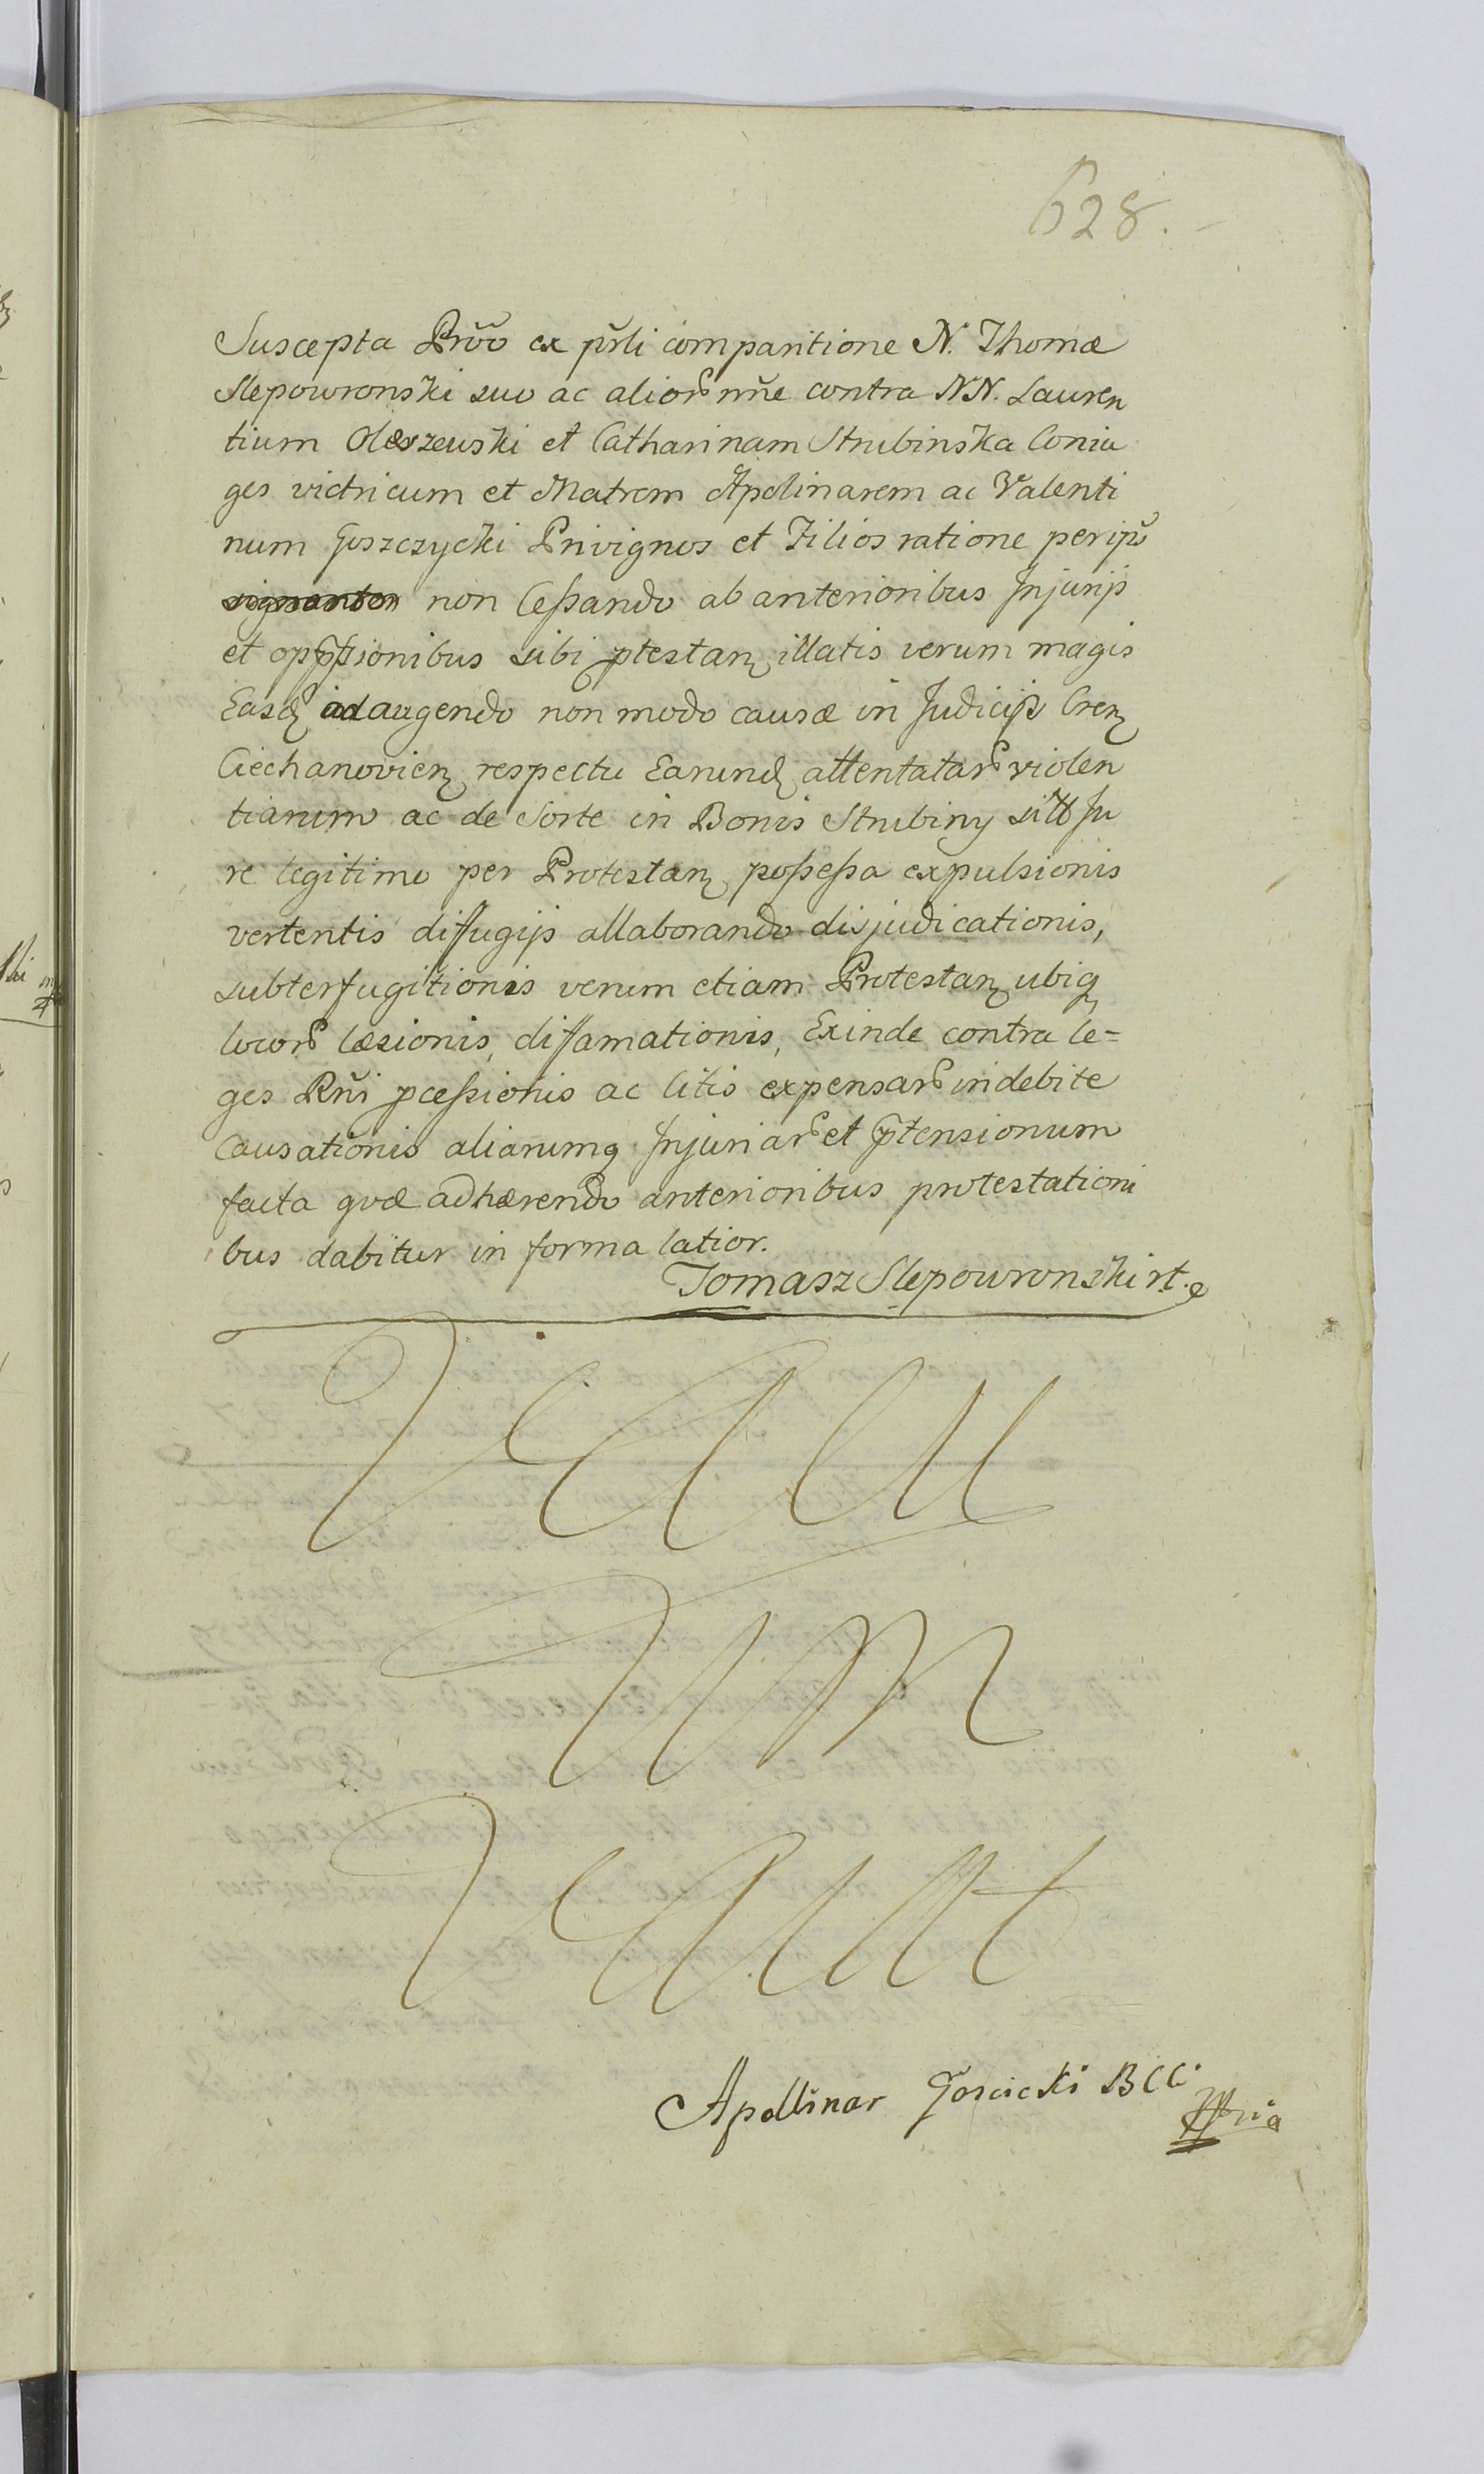 628.
Suscepta Pr̃õõ ex pr̃li comparitione N. Thomæ
Slepowronski suo ac alior̃ nñe contra NN. Lauren
tium Olszewski et Catharinam Strubinska Coniu
ges victricum et Matrem Apolinarem ac Valenti
num Goszczycki Privignos et Filios ratione per ip̃s
non Ceſsando ab anterioribus Injurijs
et opp̃ſsionibus sibi ptestanҙ illatis verum magis
Easdҙ adaugendo non modo causæ in Judicijs Crenҙ
Ciechanovienҙ respectu Earundҙ attentatar̃ violen
tiarum ac de Sorte in Bonis Strubiny Ju
re legitimo per Protestanҙ poſseſsa expulsionis
vertentis diffugijs allaborando disjudicationis,
subterfugitionis verum etiam Protestanҙ ubiqҙ
locor̃ læsionis, diffamationis, Exinde contra le=
ges Rñi pceſsionis ac litis expensar̃ indebite
Causationis aliarumqҙ Injuriar̃ et p̃tensionum
facta qvæ adhærendo anterioribus protestationi
bus dabitur in forma latior.
Tomasz Slepowronski
Apollinar Goscicki BCC